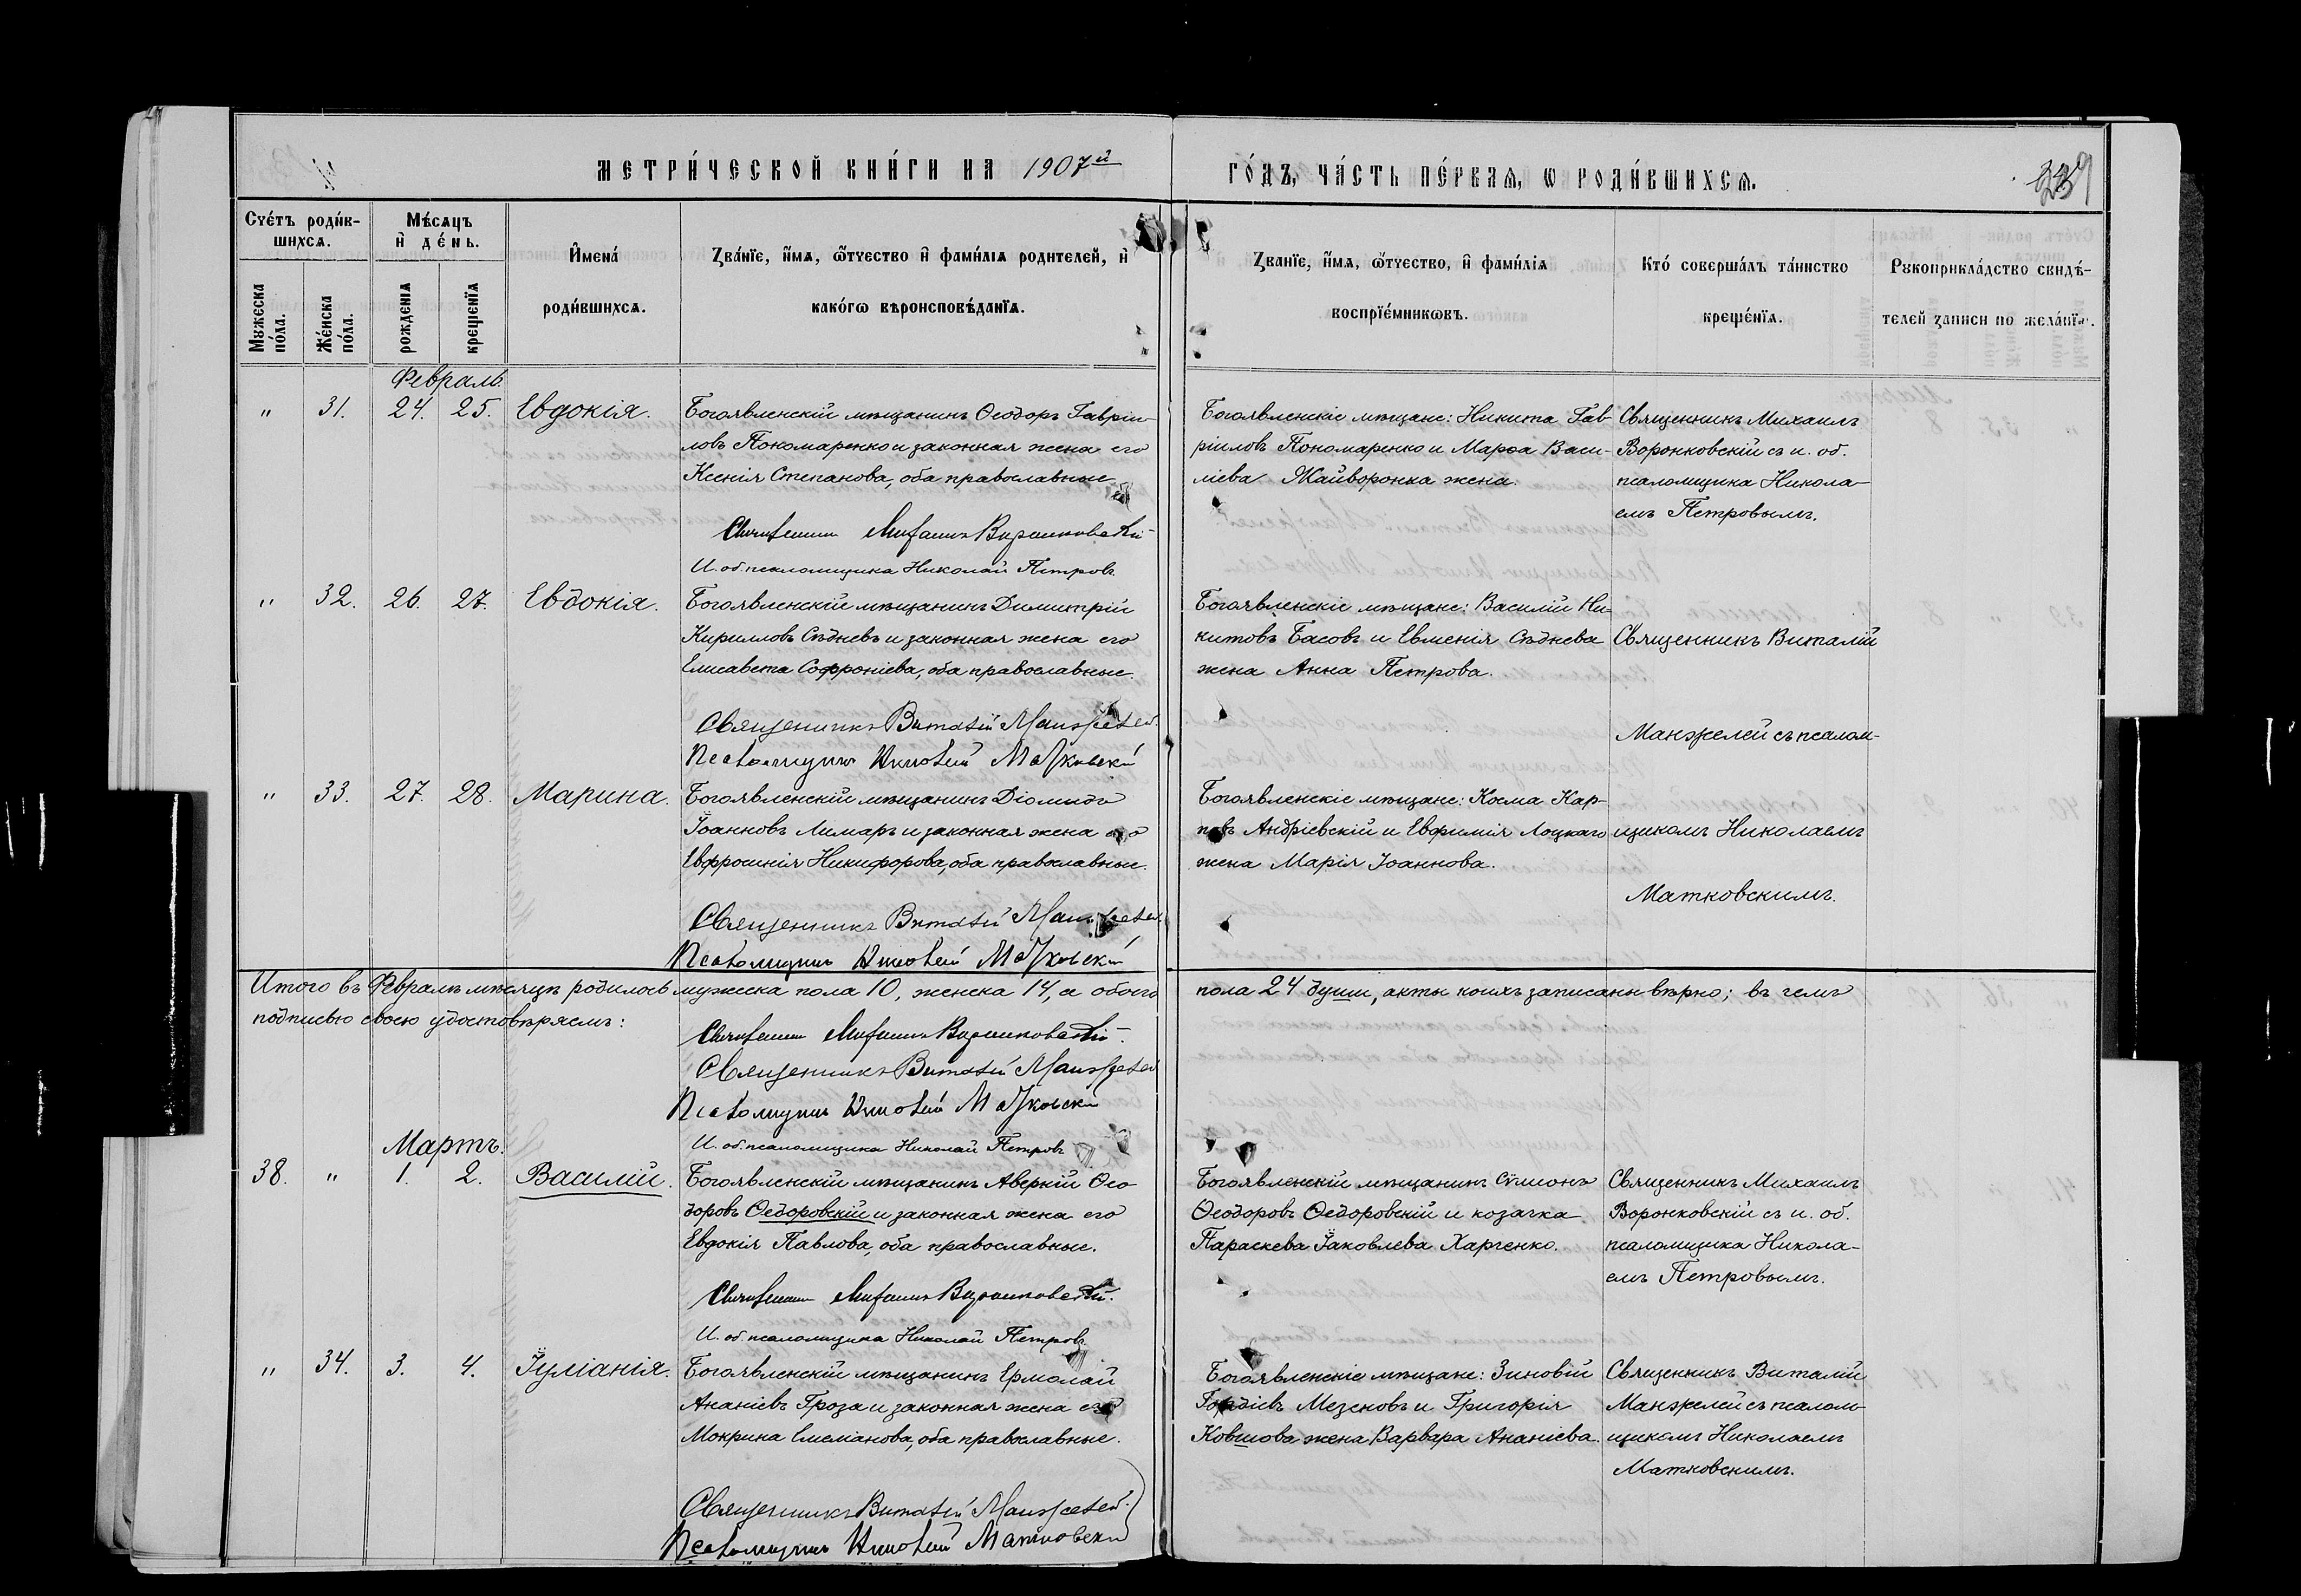 МЕТРИ́ЧЕСКОЙ КНИ́ГИ НА 1907й ГО́ДЪ, ЧА́СТЬ ПЕ́РВАѦ, Ѡ РОДИ́ВШИХСѦ.
Сче́тъ роди́в-
шихсѧ.
Мꙋжеска по́ла.
Же́нска по́ла.
Мѣ́сѧцъ
и҆ де́нь.
рожденїѧ
крещенїѧ
И҆мена́
роди́вшихсѧ.
Зва́нїе, и҆́мѧ, ѻ҆́тчество и҆ фами́лїѧ родителей, и҆
како́гѡ вѣроисповѣ́данїѧ.
Зва́нїе, и҆́мѧ, ѻ҆́тчество, и҆ фами́лїѧ
воспрїе́мникѡвъ.
Кто́ соверша́лъ та́инство
креще́нїѧ.
Рꙋкоприкла́дство свидѣ́-
телей записи по жела́нїю.
Февраль.
" 31. 24. 25. Евдокія.
Богоявленскій мѣщанинъ Ѳеодоръ Гавріи-
ловъ Пономаренко и законная жена его
Ксенія Степанова, оба православные
Священникъ Михаилъ Воронковскій
И. об. псаломщика Николай Петровъ.
Богоявленскіе мѣщане: Никита Гав-
ріиловъ Пономаренко и Марѳа Васи-
ліева Жайворонка жена.
Священникъ Михаилъ
Воронковскій съ и. об.
псаломщика Никола-
емъ Петровымъ.
" 32. 26. 27. Евдокія.
Богоявленскій мѣщанинъ Димитрій
Кирилловъ Сѣдневъ и законная жена его
Елисавета Софроніева, оба православные.
Священникъ Виталій Манжелей.
Псаломщикъ Николай Матковскій
Богоявленскіе мѣщане: Василій Ни-
китовъ Басовъ и Евменія Сѣднева
жена Анна Петрова.
Священникъ Виталій
Манжелей съ псалом-
" 33. 27. 28. Марина.
Богоявленскій мѣщанинъ Діомидъ
Іоанновъ Лимаръ и законная жена его
Евфросинія Никифорова, оба православные.
Священникъ Виталій Манжелей.
Псаломщикъ Николай Матковскій
Богоявленскіе мѣщане: Косма Кар-
повъ Андріевскій и Евфимія Лоцкаго
жена Марія Іоаннова.
щикомъ Николаемъ
Матковскимъ.
Итого въ Февралѣ мѣсяцѣ родилось мужеска пола 10, женска 14, а обоего пола 24 души, акты коихъ записаны вѣрно; въ чемъ
подписью своею удостовѣряемъ:
Священникъ Михаилъ Воронковскій.
Священникъ Виталій Манжелей
Псаломщикъ Николай Матковскій
И. об. псаломщика Николай Петровъ
Мартъ.
38. " 1. 2. Василій.
Богоявленскій мѣщанинъ Аверкій Ѳео-
доровъ Ѳедоровскій и законная жена его
Евдокія Павлова, оба православные.
Священникъ Михаилъ Воронковскій.
И. об. псаломщика Николай Петровъ
Богоявленскій мѣщанинъ Сѵмеонъ
Ѳеодоровъ Ѳедоровскій и козачка
Параскева Іаковлева Харченко.
Священникъ Михаилъ
Воронковскій съ и. об.
псаломщика Никола-
емъ Петровымъ.
" 34. 3. 4. Іуліанія.
Богоявленскій мѣщанинъ Ермолай
Ананіевъ Гроза и законная жена его
Мокрина Емеліанова, оба православные.
Священникъ Виталій Манжелей.
Псаломщикъ Николай Матковскій
Богоявленскіе мѣщане: Зиновій
Гордіевъ Мезеновъ и Григорія
Ковшова жена Варвара Ананіева.
Священникъ Виталій
Манжелей съ псалом-
щикомъ Николаемъ
Матковскимъ.